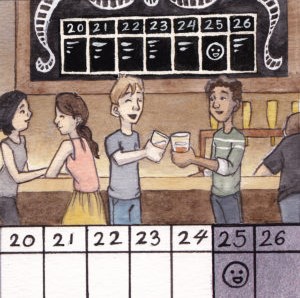 20 21 22 23 24 25 26
20 21 22 23 24 25 26